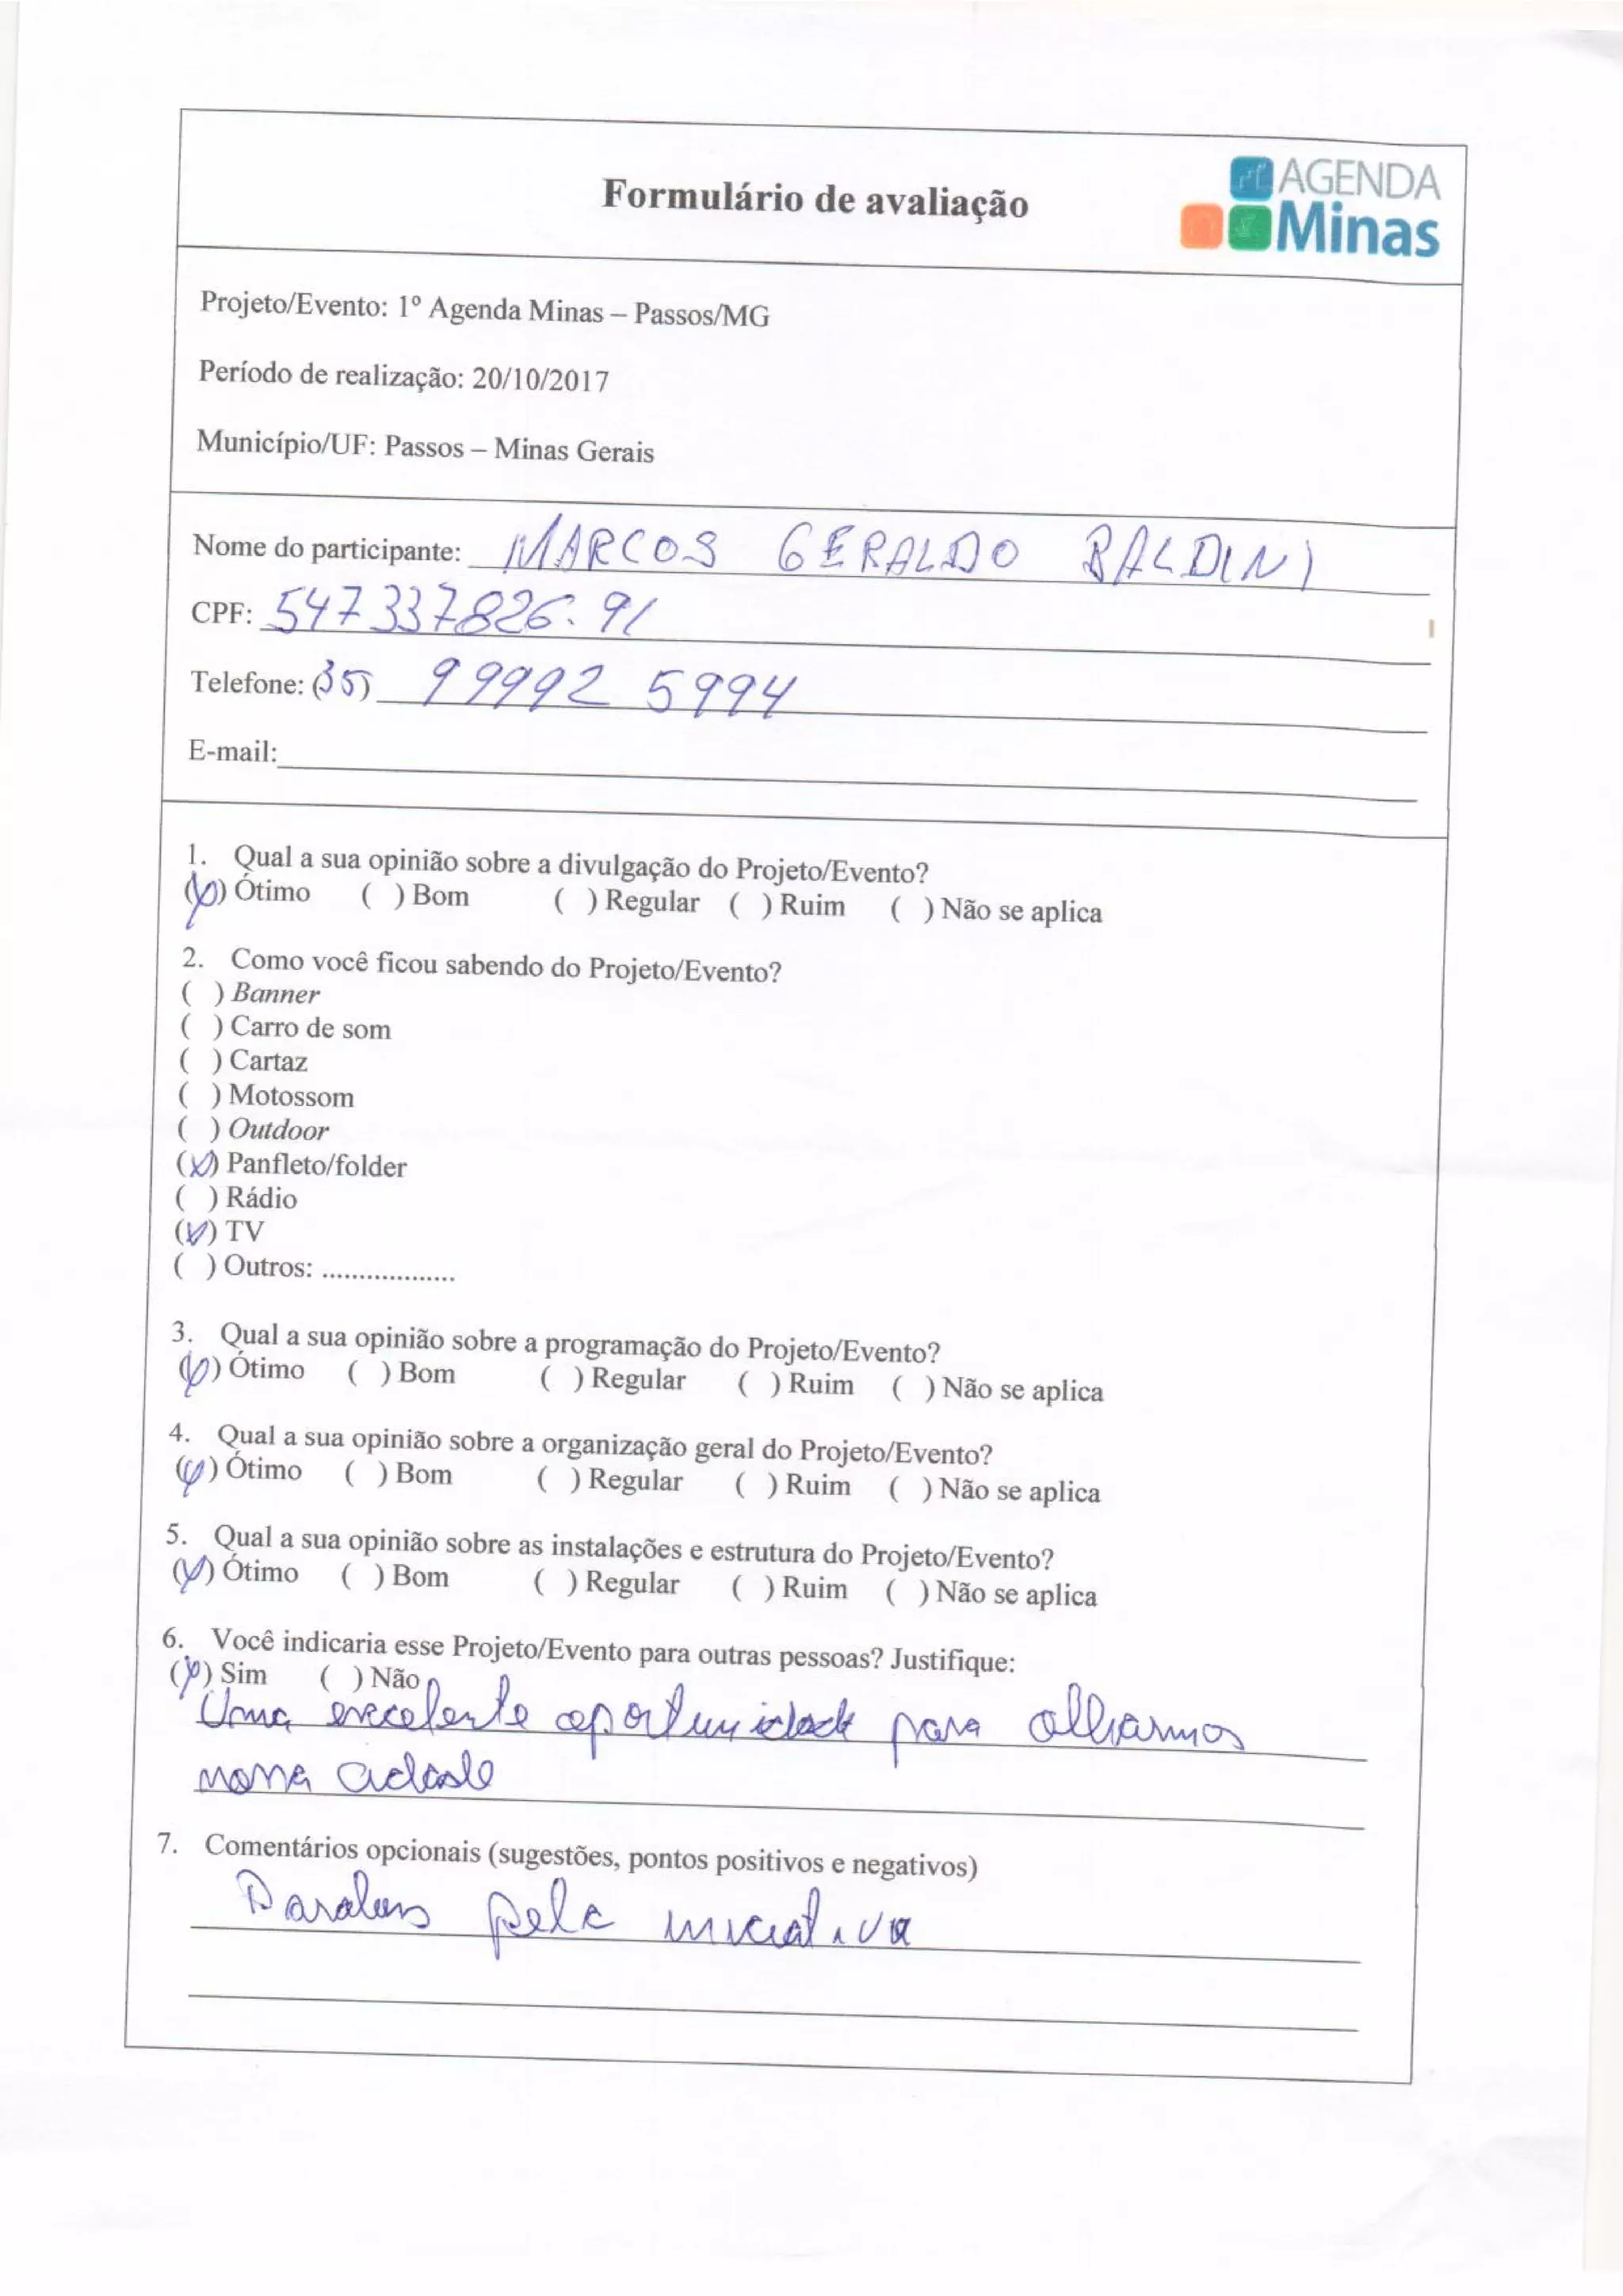 Formulário de avaliação
AGENDA
Minas
Projeto/Evento: 1º Agenda Minas – Passos/MG
Período de realização: 20/10/2017
Município/UF: Passos – Minas Gerais
Nome do participante: MARCOS GERALDO BALDINI
CPF: 547337826.91
Telefone: (35) 99992 5994
E-mail:
1. Qual a sua opinião sobre a divulgação do Projeto/Evento?
(X) Ótimo ( ) Bom ( ) Regular ( ) Ruim ( ) Não se aplica
2. Como você ficou sabendo do Projeto/Evento?
( ) Banner
( ) Carro de som
( ) Cartaz
( ) Motossom
( ) Outdoor
(X) Panfleto/folder
( ) Rádio
(X) TV
( ) Outros: ..................
3. Qual a sua opinião sobre a programação do Projeto/Evento?
(X) Ótimo ( ) Bom ( ) Regular ( ) Ruim ( ) Não se aplica
4. Qual a sua opinião sobre a organização geral do Projeto/Evento?
(X) Ótimo ( ) Bom ( ) Regular ( ) Ruim ( ) Não se aplica
5. Qual a sua opinião sobre as instalações e estrutura do Projeto/Evento?
(X) Ótimo ( ) Bom ( ) Regular ( ) Ruim ( ) Não se aplica
6. Você indicaria esse Projeto/Evento para outras pessoas? Justifique:
(X) Sim ( ) Não
Uma excelente oportunidade para olharmos
nossa cidade
7. Comentários opcionais (sugestões, pontos positivos e negativos)
Parabens pela iniciativa